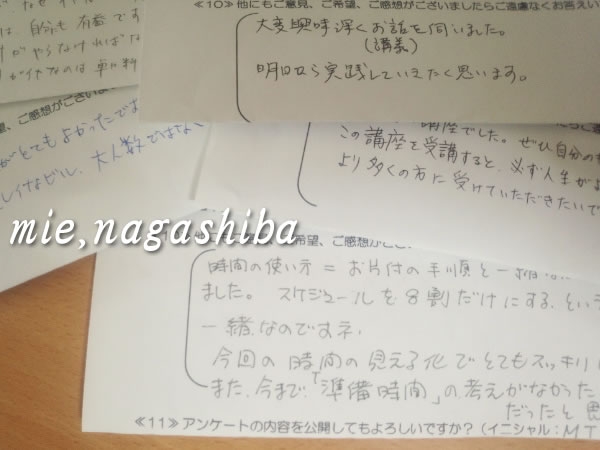 ≪10≫他にもご意見、ご希望、ご感想がございましたらご遠慮なくお答えい
大変興味深くお話を伺いました。
(講義)
明日から実践していきたく思います。
は、自分も有意です
やらなければな
、ご感想がございま
がとてもよかったです
大人数ではな
講座でした。ぜひ自分の
この講座を受講すると、必ず人生が
より多くの方に受けていただきたいで
mie,nagashiba
希望、ご感想がござ
時間の使い方 = お片付の手順と一緒
ました。 スケジュールを8割だけにする、という
一緒なのですネ。
今回の時間の見える化でとてもスッキリ
また、今まで、「準備時間」の考えがなかった
だったと思
≪11≫アンケートの内容を公開してもよろしいですか？(イニシャル：MT